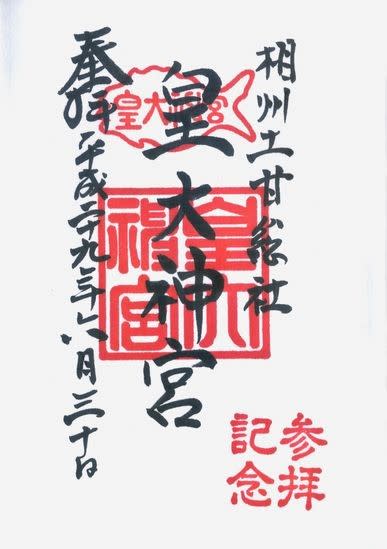 相州土甘総社
皇大神宮
奉拝 平成二十九年八月三十日
皇大神宮
皇大神宮
参拝
記念